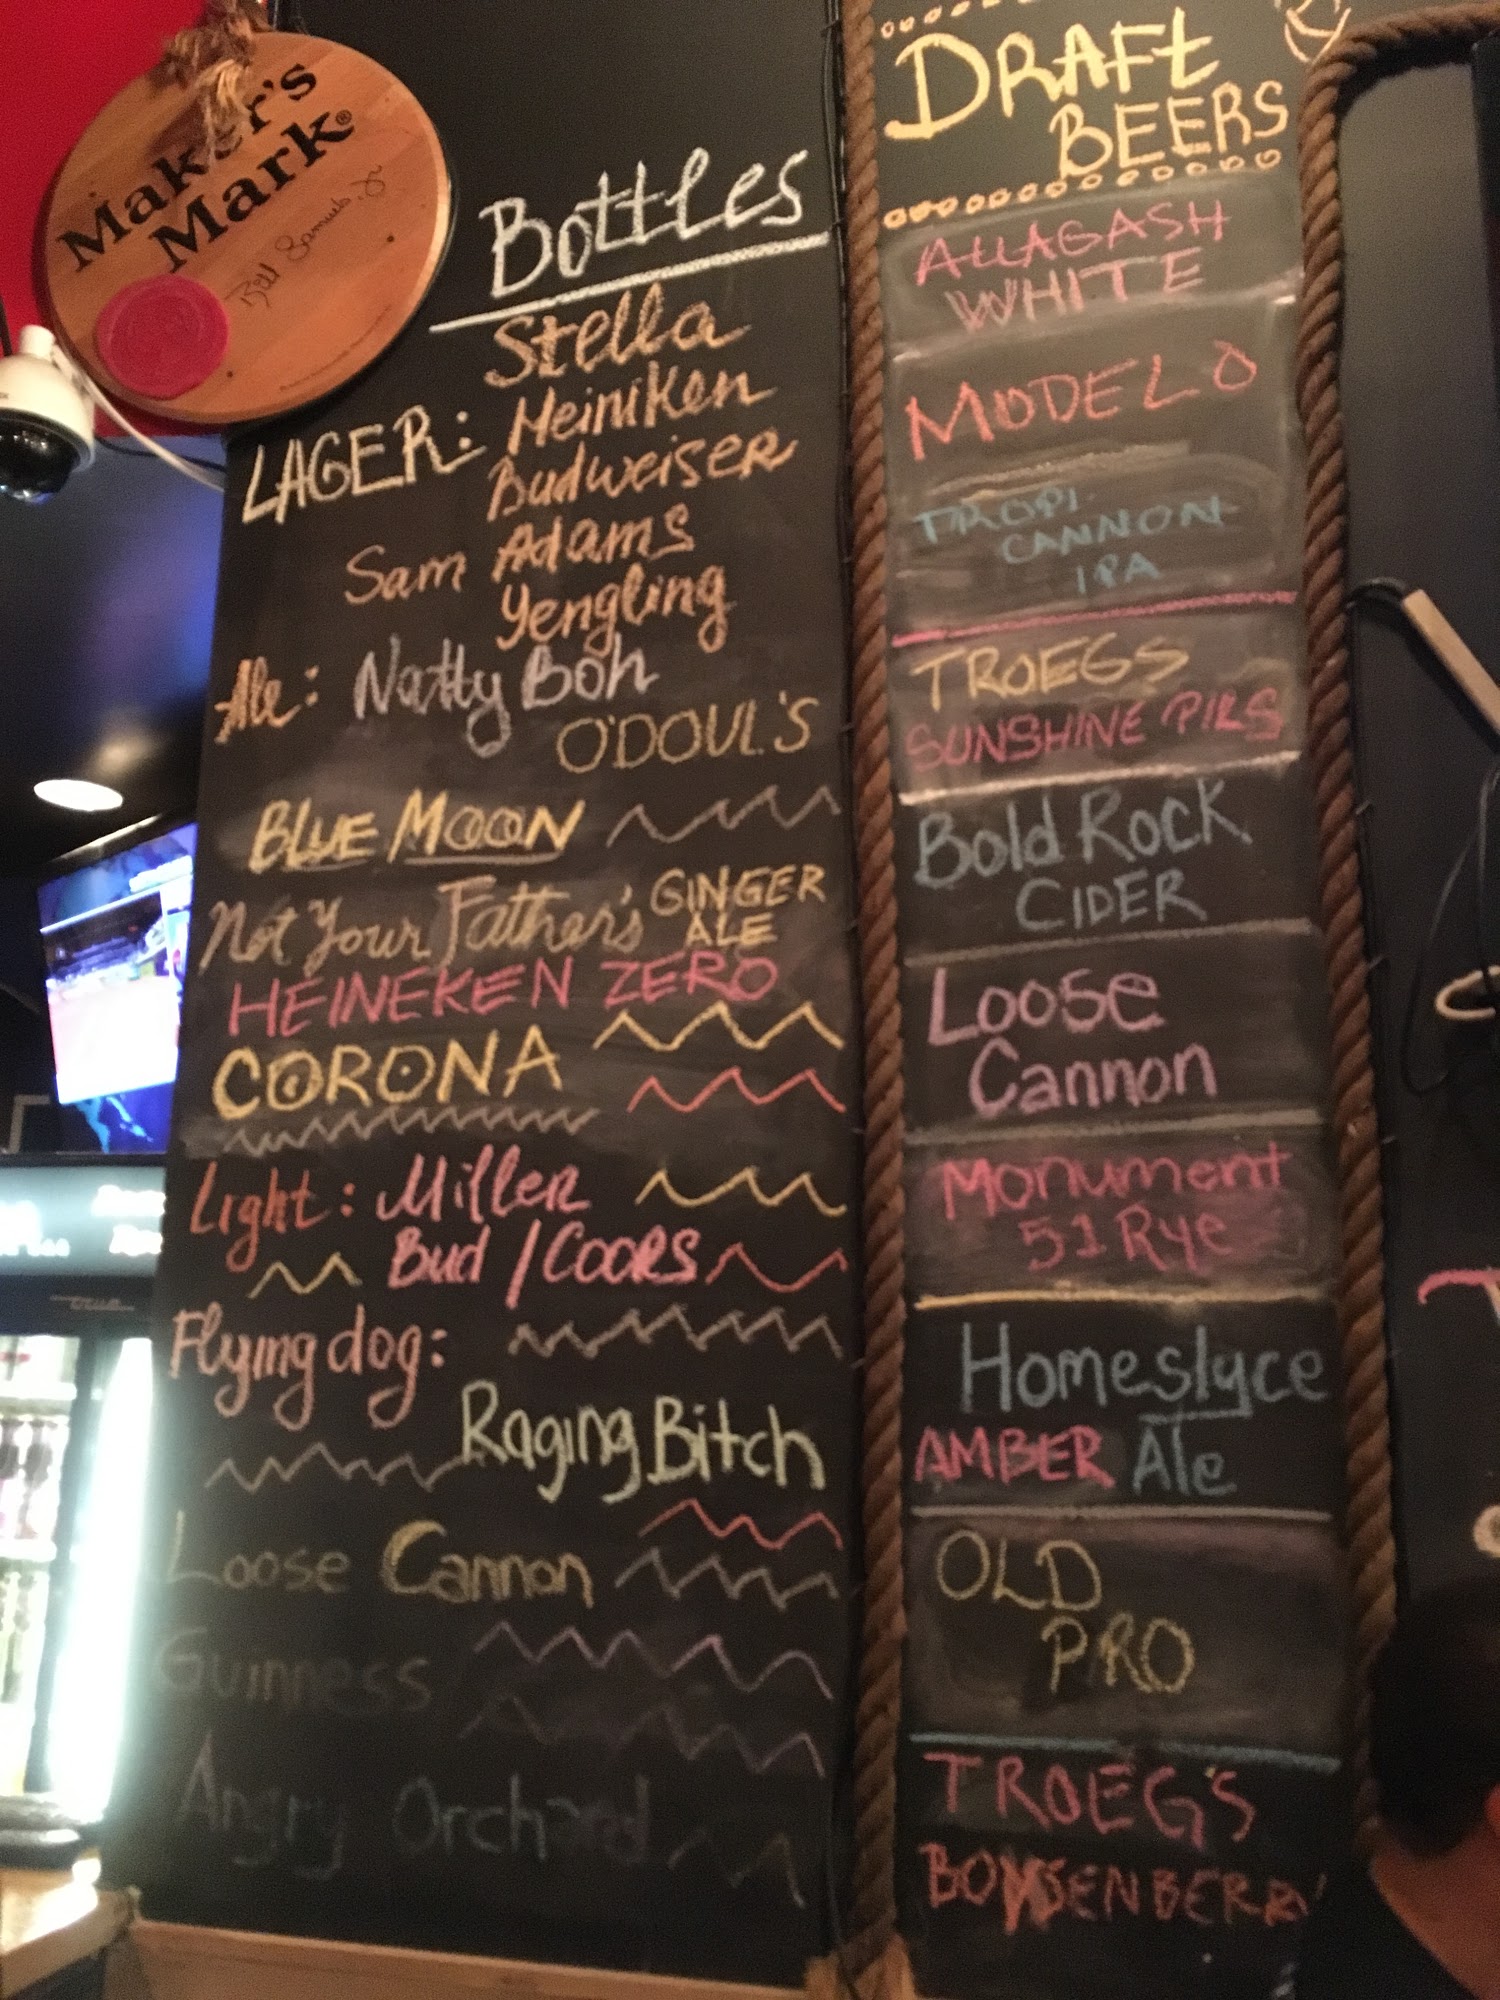 Maker's
Mark®
Bill Samuels, Jr
Bottles
LAGER: Stella
Heiniken
Budweiser
Sam Adams
Yengling
Ale: Natty Boh
O'DOUL'S
BLUE MOON
Not Your Father's GINGER
ALE
HEINEKEN ZERO
CORONA
Light: Miller
Bud / COORS
Flying dog:
Raging Bitch
Loose Cannon
Guinness
Angry Orchard
DRAFT
BEERS
ALLAGASH
WHITE
MODELO
TROPI
CANNON
IPA
TROEGS
SUNSHINE PILS
Bold Rock
CIDER
Loose
Cannon
Monument
51 Rye
Homeslyce
AMBER Ale
OLD
PRO
TROEG'S
BOYSENBERRY